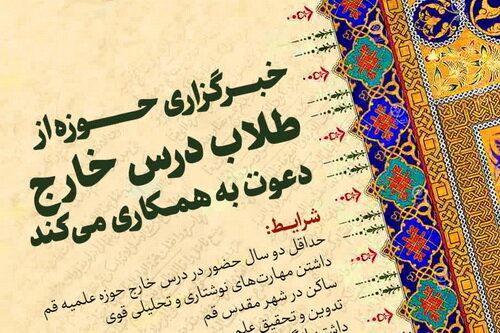 خبرگزاری حوزه از
طلاب درس خارج
دعوت به همکاری می‌کند
شرایط:
حداقل دو سال حضور در درس خارج حوزه علمیه قم
داشتن مهارت‌های نوشتاری و تحلیلی قوی
ساکن در شهر مقدس قم
تدوین و تحقیق علمی